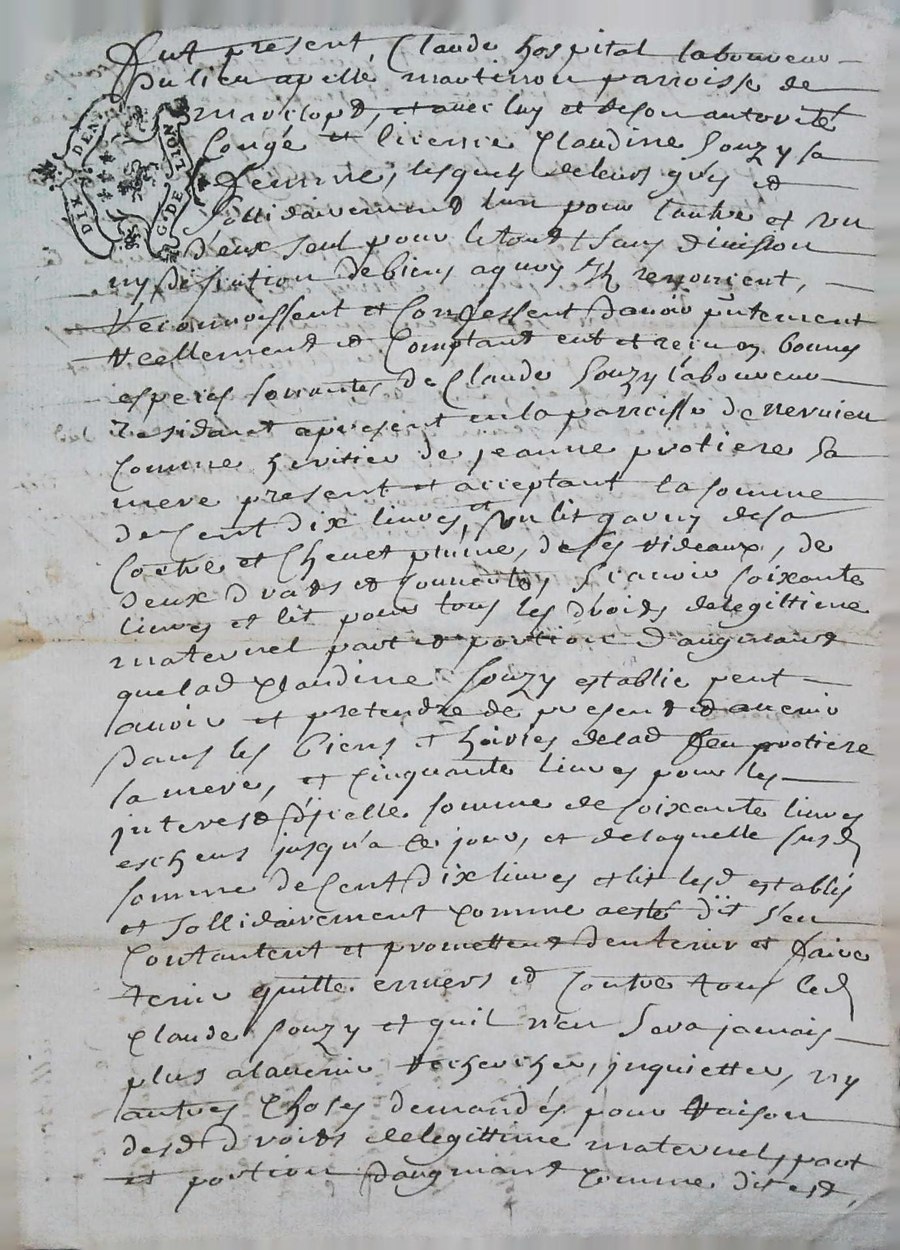 Fut present Claude hospital laboureur
du lieu apellé martinon parroisse de
marclopt, et avec luy et de son autorité
Congé et licence Claudine Souzy sa
femme, lesquels de leurs grés et
sollidairement lun pour lautre et un
d'eux seul pour le tout sans division
ny discution de biens a quoy ilz renoncent,
Reconnoissent et Confessent d'avoir pntement
reellement et Comptant eut et receu en bonnes
especes sonantes de Claude Souzy laboureur
residant apresent en la parroisse de nervieu
Comme heritier de jeanne protiere sa
mere present et acceptant la somme
de Cent dix livres, et un lit garny de sa
Coetre et Chevet plume, de ses rideaux, de
deux draps et couverte, scavoir soixante
livres et lit pour tous les droits de legittime
maternel part et portion d'augmant
que lad Claudine Souzy establie peut
avoir et pretendre de present et avenir
dans les biens et hoiries de lad feu protiere
sa mere, et Cinquante livres pour les
interest d'jcelle somme de soixante livres
escheus jusqu'a ce jour, et de laquelle susd
somme de Cent dix livres et lit lesd establis
et sollidairement Comme a esté dit s'en
Contantent et promettent d'en tenir et faire
tenir quitte envers et Contre tous led
Claude Souzy et quil n'en sera jamais
plus alavenir rechercher, jnquietter, ny
autres Choses demandés pour raison
desd droits de legittime maternel, part
et portion d'augmant Comme dit est,
DIX DEN
G. DE LION